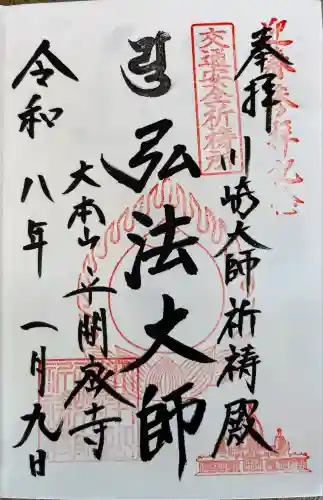 奉拝
川崎大師祈祷殿
交通安全祈祷所
弘法大師
大本山
平間寺
令和八年一月九日